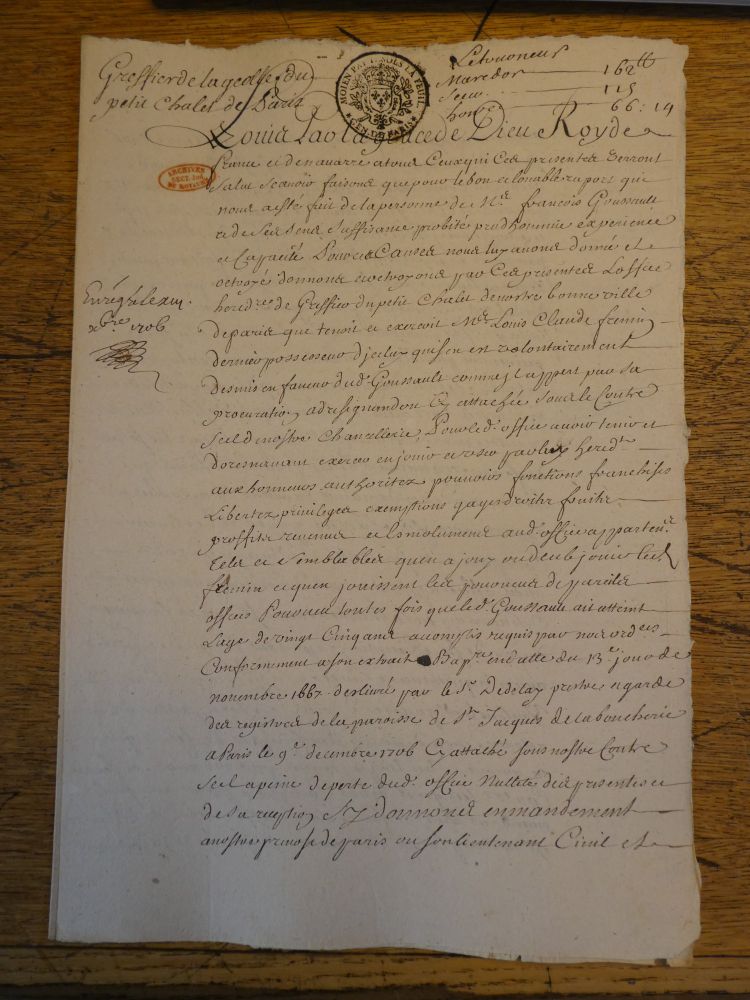 Greffier de la geolle du
petit Chalet de Paris
MOIEN PAP DEUX S LA FEUIL
GEN DE PARIS
162tt
Marcdor 115
honr 66 : 14
ARCHIVES SECT. JUD. DU ROYAUME
Louis Par la grace de Dieu Roy de
france et de navarre a tous Ceux qui Ces presentes verront
Salut scavoir faisons que pour le bon et louable raport que
nous a esté fait de la personne de Me françois Goussault
et de ses sens suffisance probité prudhommie experience
et Capacité Pour ces Causes nous luy avons donné et
octroyé donnons et octroyons par Ces presentes L'office
heredre de Greffier du petit Chalet de nostre bonne ville
de paris que tenoit et exercoit Me Louis Claude fremin
dernier possesseur d'jceluy qui s'en est volontairement
desmis en faveur dud. Goussault comme jl appert par sa
procuration adresignandum Cy attachée sous le Contre
Scel de nostre Chancellerie, Pour led. office avoir tenir et
doresnavant exercer en jouir et user par luy heredt
aux honneurs authoritez pouvoirs fonctions franchises
Libertez privileges exemptions gages droits fruits
proffits revenus et Esmolumens aud. office appartens
Tels et Semblables qu'en a jouy ou deub jouir led.
fremin et qu'en jouissent les pourveus de pareils
offices Pourveu toutes fois que led. Goussault ait atteint
Lage de vingt Cinq ans accomplis requis par nos ordces
Conformement a son extrait Bapre en datte du 13e jour de
novembre 1667. deslivré par le Sr. Dedelay prestre et garde
des registres de la paroisse de St. Jacques de la boucherie
a Paris le 9e decembre 1706 Cy attaché sous nostre Contre
scel a peine de perte dud. office Nulleté des presentes et
de sa reception Sy donnons en mandement
a nostre prevost de paris ou son lieutenant Civil et
Enregle le
xbre 1706